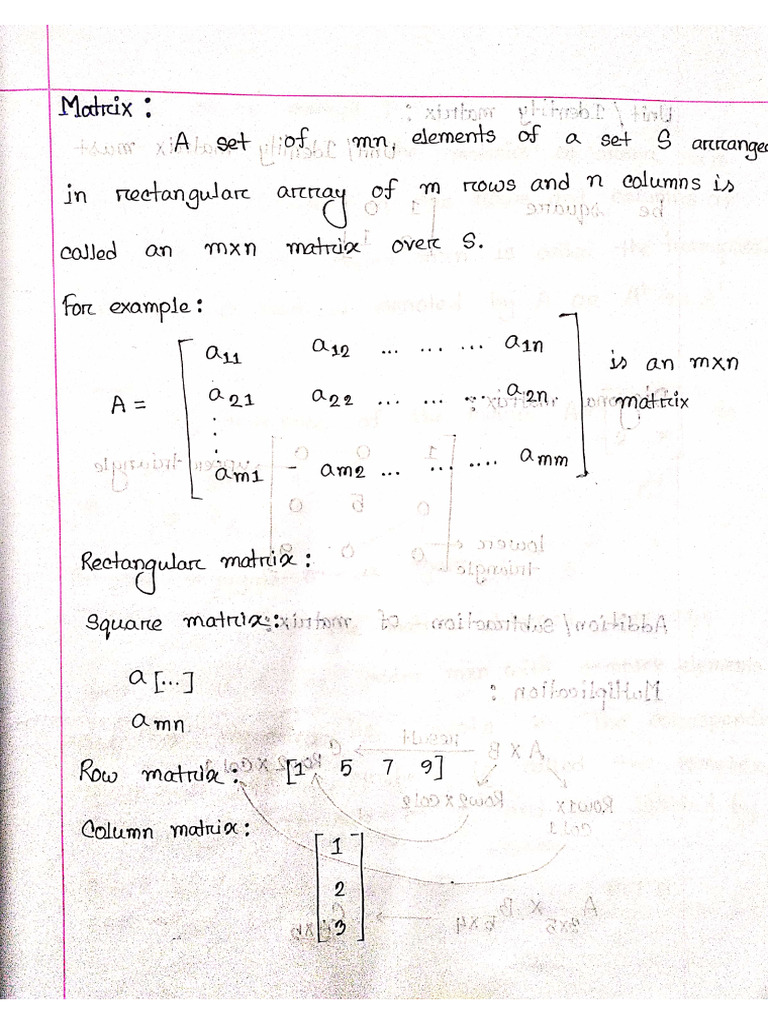 Matrix :
A set of mn, elements of a set S arranged
in rectangular array of m rows and n columns is
called an mxn matrix over S.
For example:
A = [ a11 a12 ... ... ... a1n
a21 a22 ... ... ... a2n
⋮
am1 - am2 ... ... .... amm ] is an mxn matrix
Rectangular matrix :
Square matrix :
a [...]
a mn
Row matrix : [1 5 7 9]
Column matrix : [ 1
2
3 ]